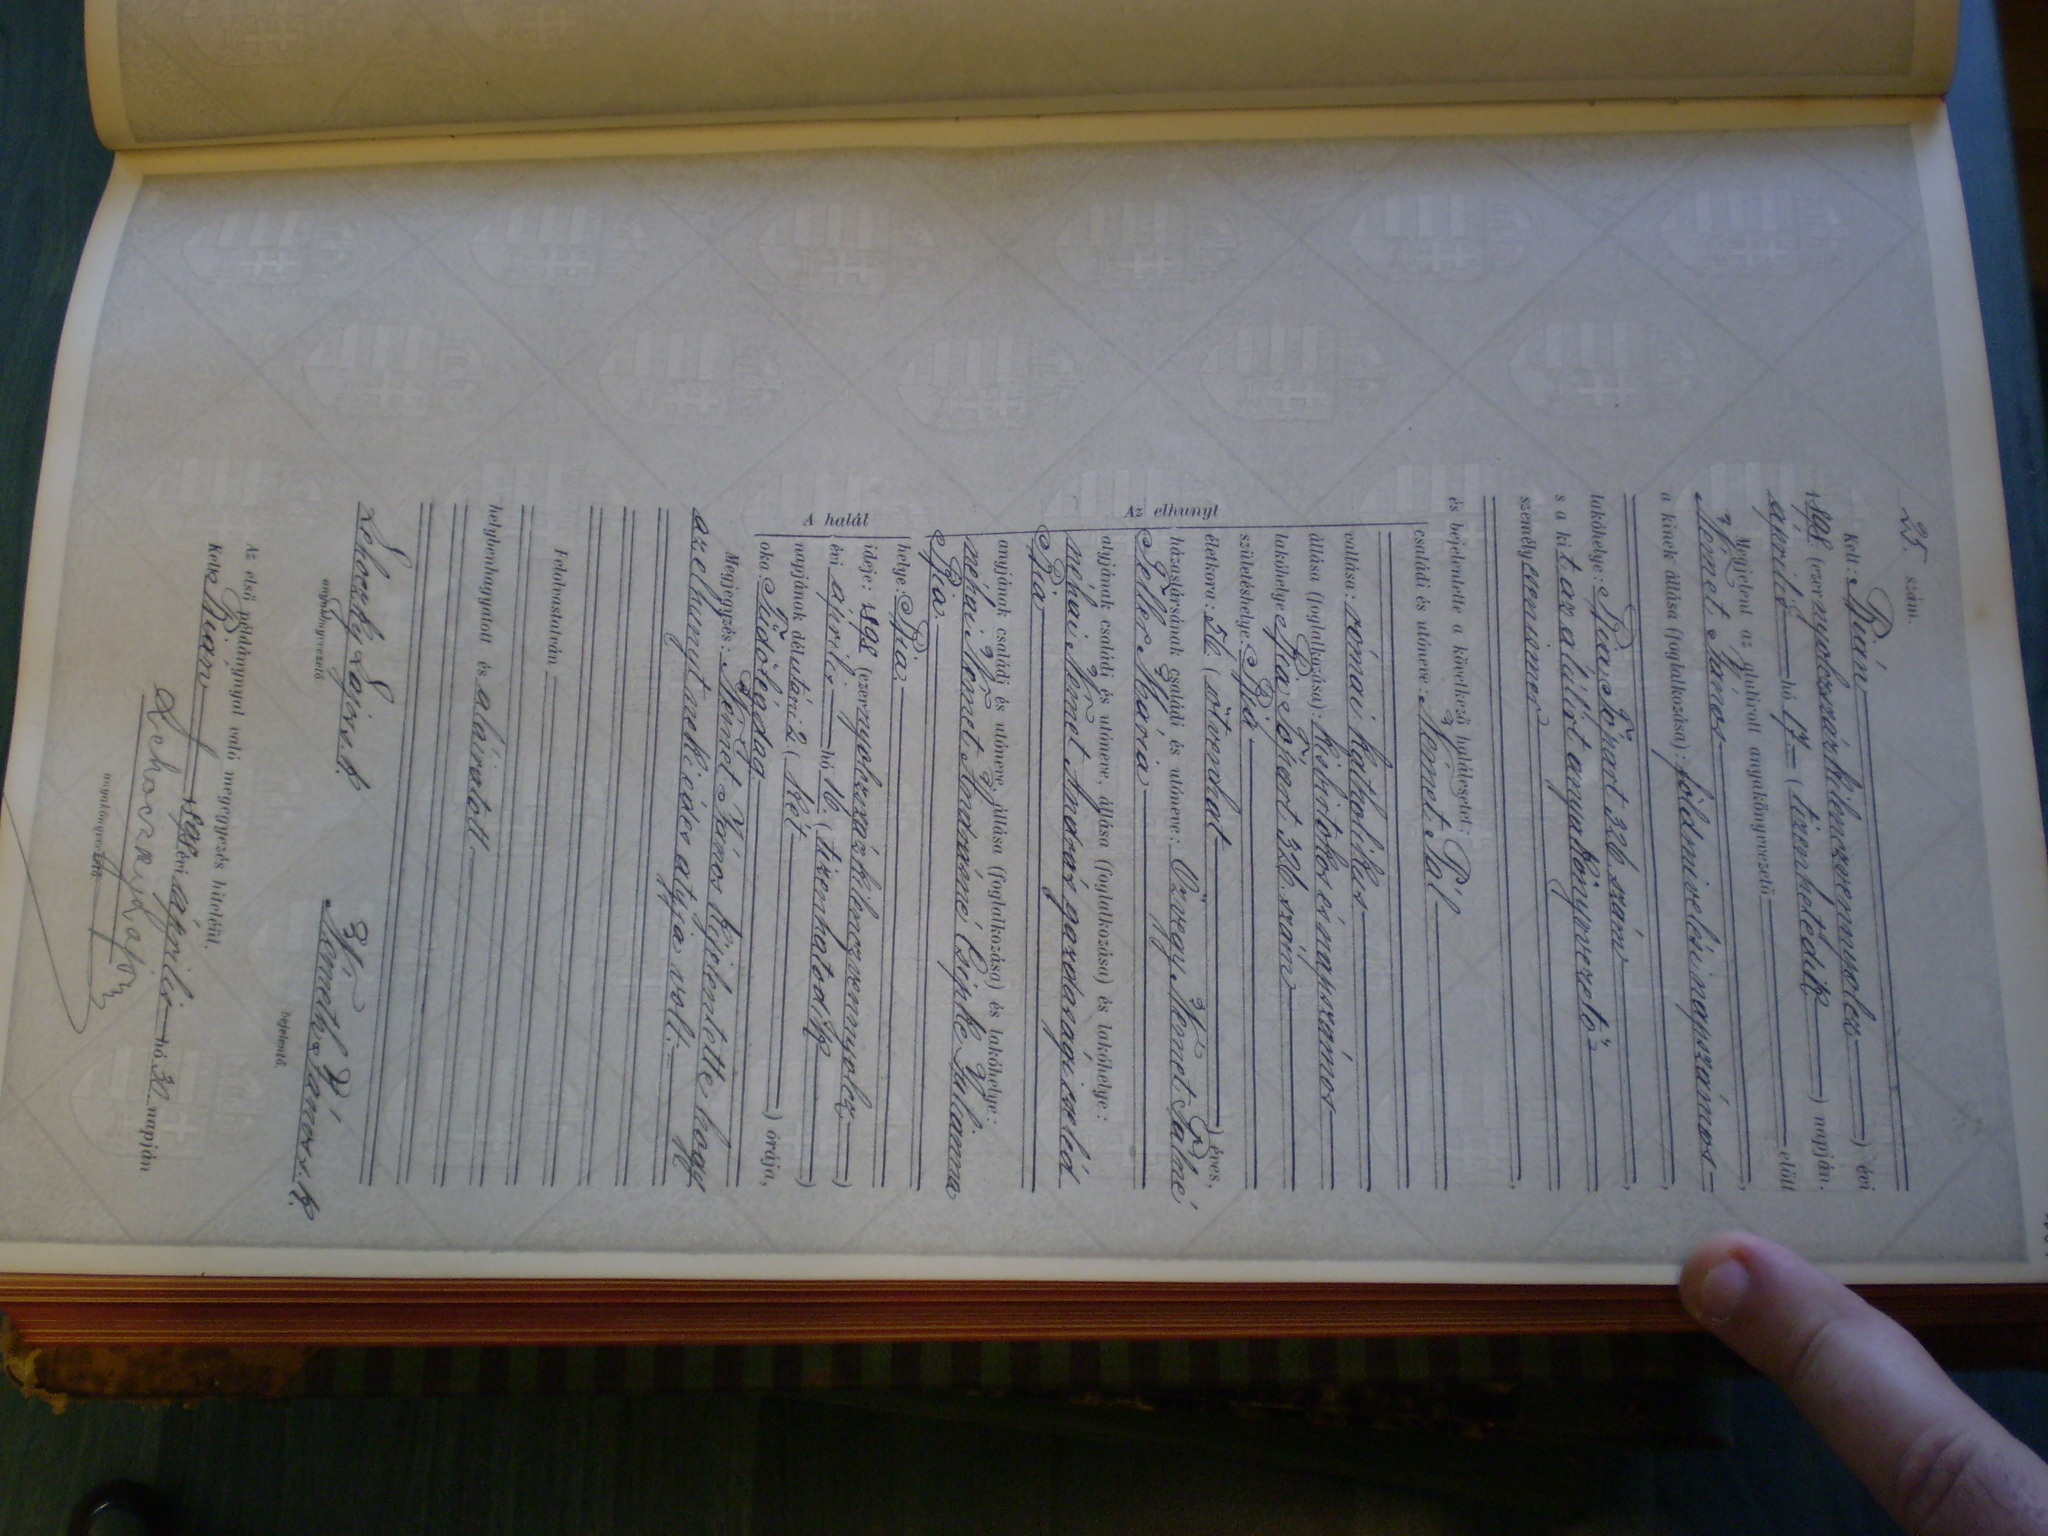 25. szám.
Kelt: Bián
1898. (ezernyolczszázkilenczvennyolcz) évi
április hó 17 (tizenhetedik) napján.
Megjelent az alulirott anyakönyvvezető előtt
Német János
a kinek állása (foglalkozása): földmivelési napszámos
lakóhelye: Bia 326. szám
s a kit az alulirt anyakönyvvezető
személyesen ismer
és bejelentette a következő halálesetet:
Az elhunyt
családi és utóneve: Német Pál
vallása: római katholikus
állása (foglalkozása): kisbirtokos és napszámos
lakóhelye: Bia 326. szám
születéshelye: Bia
életkora: 56. (ötvenhat) éves,
házastársának családi és utóneve: Özvegy Német Pálné
Mária
atyjának családi és utóneve, állása (foglalkozása) és lakóhelye:
néhai Német András gazdasági cseléd
Bia
anyjának családi és utóneve, állása (foglalkozása) és lakóhelye:
néhai Német Andrásné Csipke Julianna
Bia
A halál
helye: Bia
ideje: 1898 (ezernyolczszázkilenczvennyolcz)
évi április hó 16. (tizenhatodik)
napjának délutáni 2 (két) órája,
oka: Tüdőlégdag
Megjegyzés: Német János kijelentette hogy
az elhunyt neki édes atyja volt.
Felolvastatván
helybenhagyatott és aláiratott.
Lehoczky Lajos s. k.
anyakönyvvezető.
Németh János s. k.
bejelentő.
Az első példánnyal való megegyezés hiteléül.
Kelt: Bián 1898 évi április hó 30. napján
Lehoczky Lajos
anyakönyvvezető